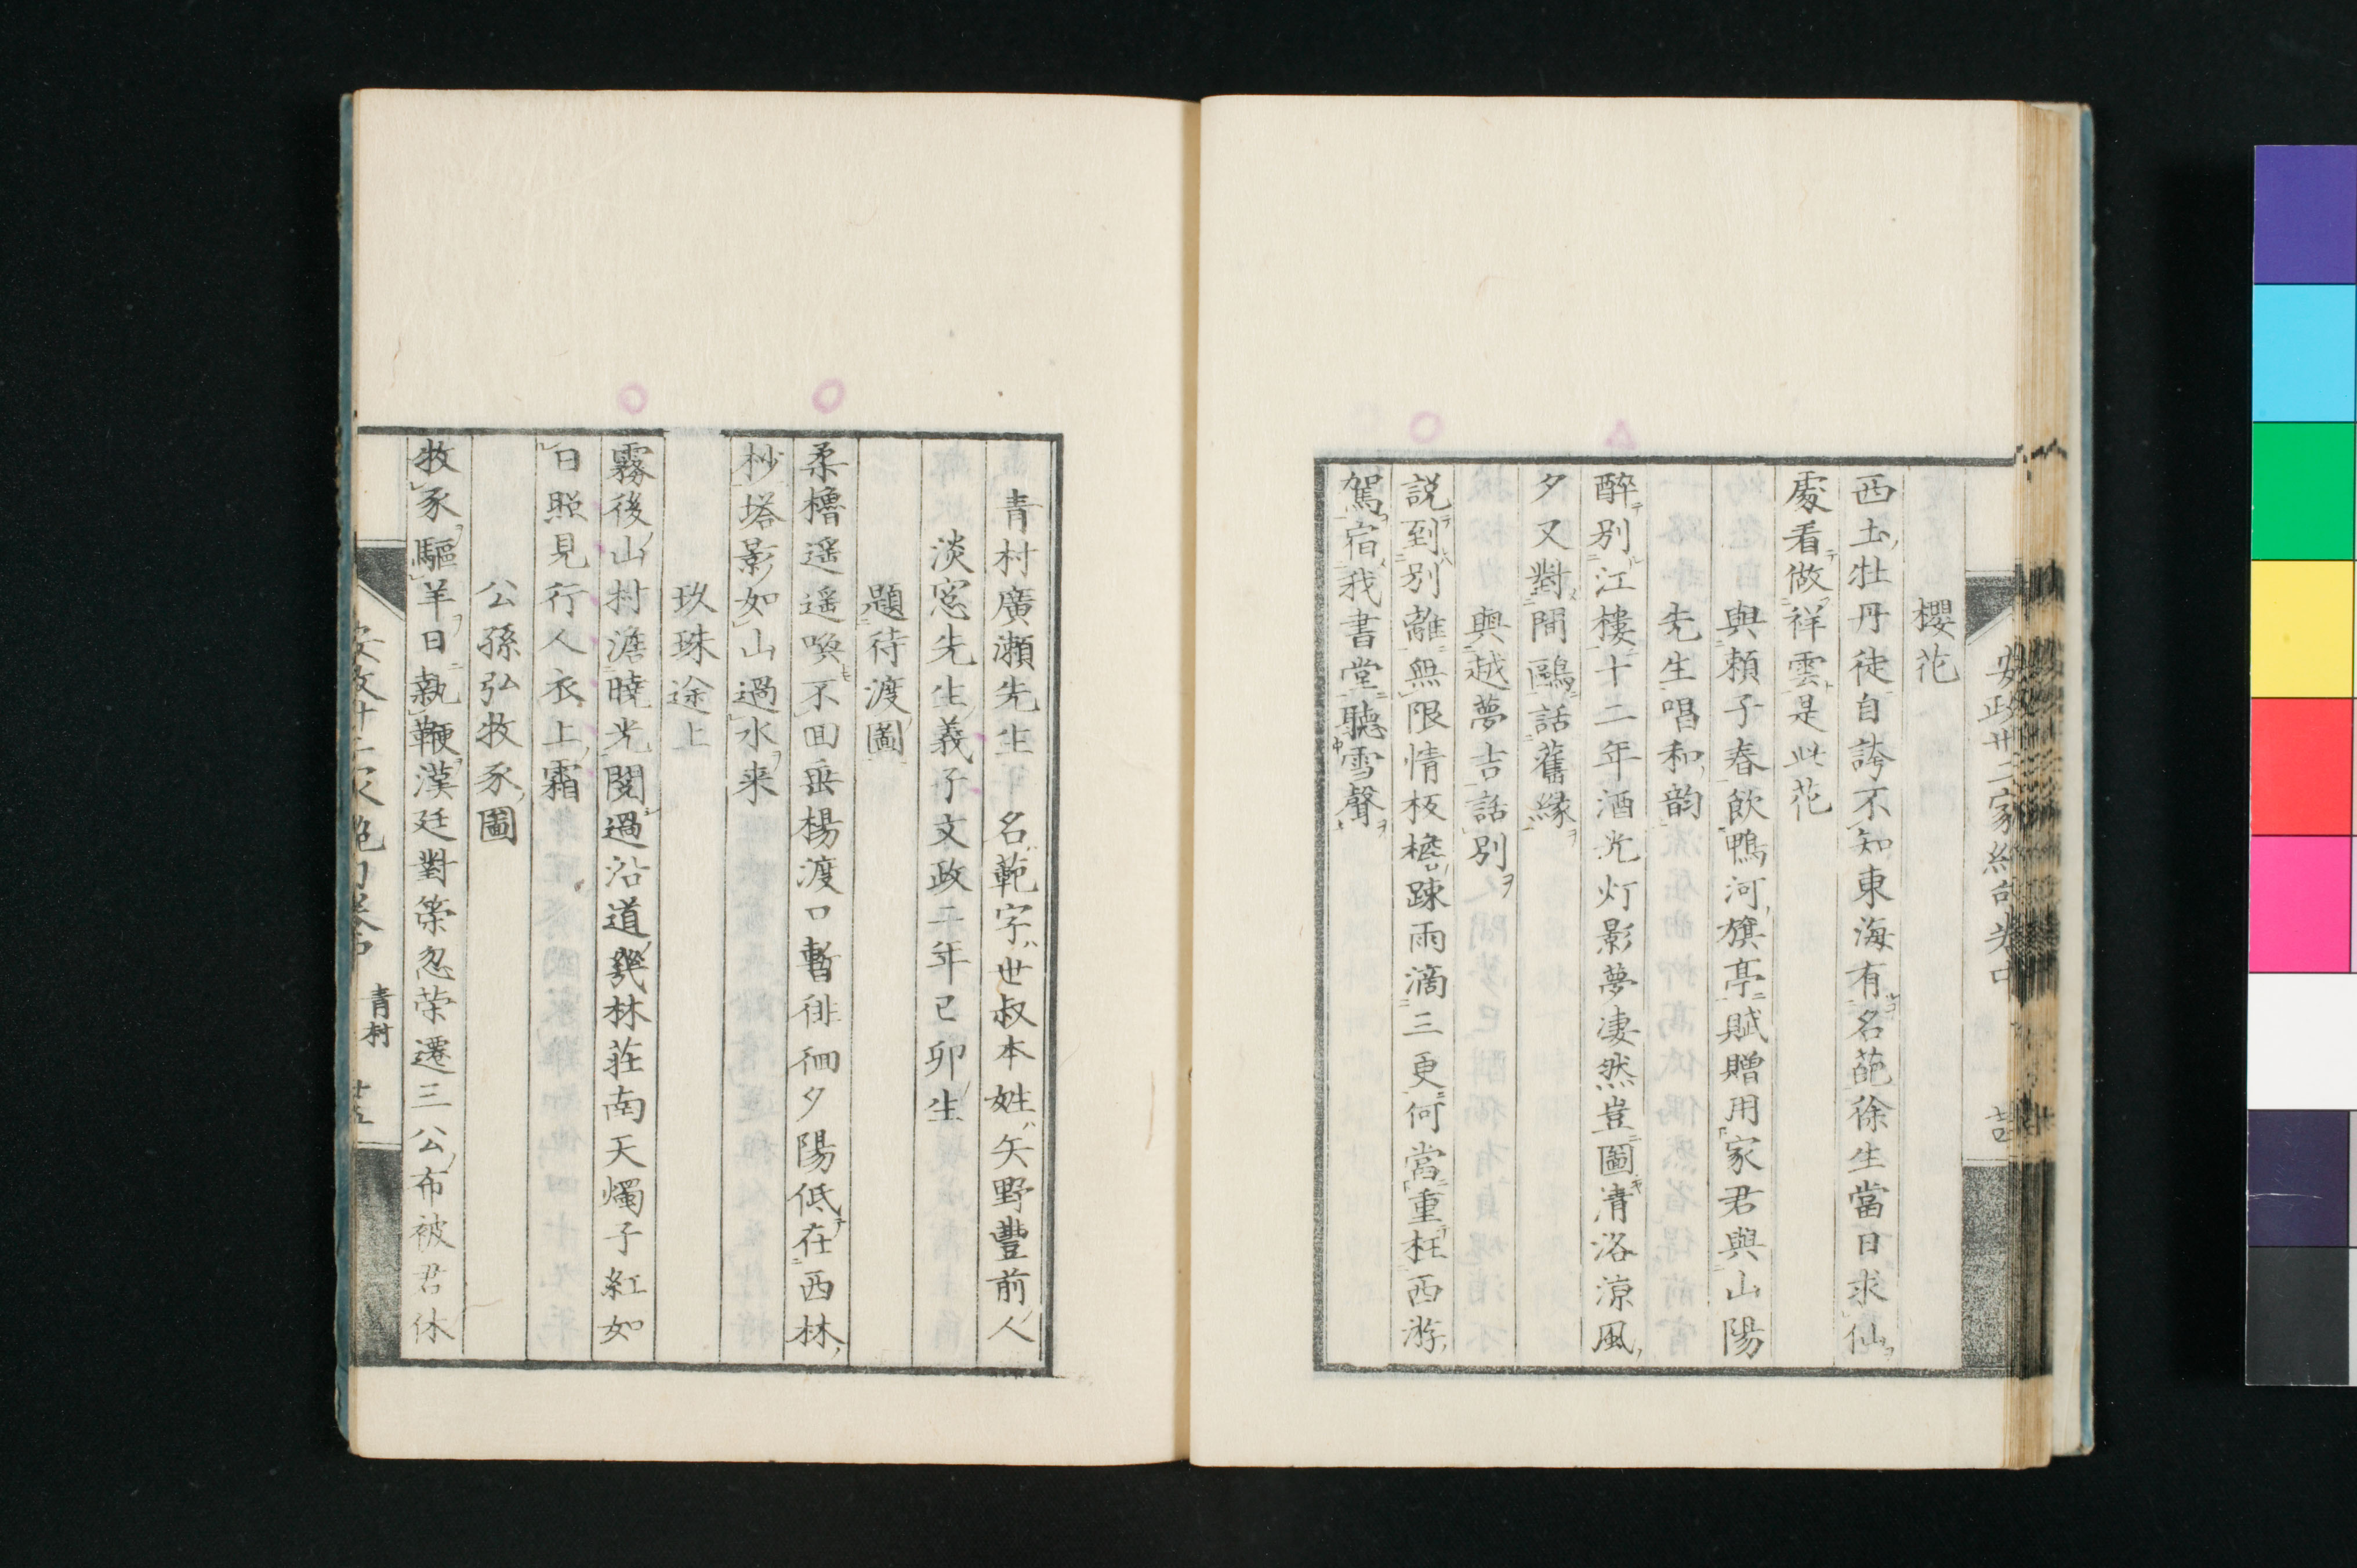 櫻花
西土牡丹徒自誇不知東海有名葩徐生當日求仙
處看做祥雲是此花
與頼子春飲鴨河旗亭賦贈用家君與山陽
先生唱和韵
醉別江樓十二年酒光灯影夢凄然豈圖清洛涼風
夕又對閒鷗話舊縁
與越夢吉話別
説到別離無限情板檐踈雨滴三更何當重枉西游
駕宿我書堂聽雪聲
青村廣瀬先生 名範字世叔本姓矢野豐前人
淡窓先生義子文政二年己卯生
題待渡圖
柔櫓遥遥喚不回垂楊渡口暫徘徊夕陽低在西林
杪塔影如山過水来
玖珠途上
霧後山村澹曉光閲過沿道幾林荘南天燭子紅如
日照見行人衣上霜
公孫弘牧豕圖
牧豕驅羊日執鞭漢廷對策忽荣遷三公布被君休
青村